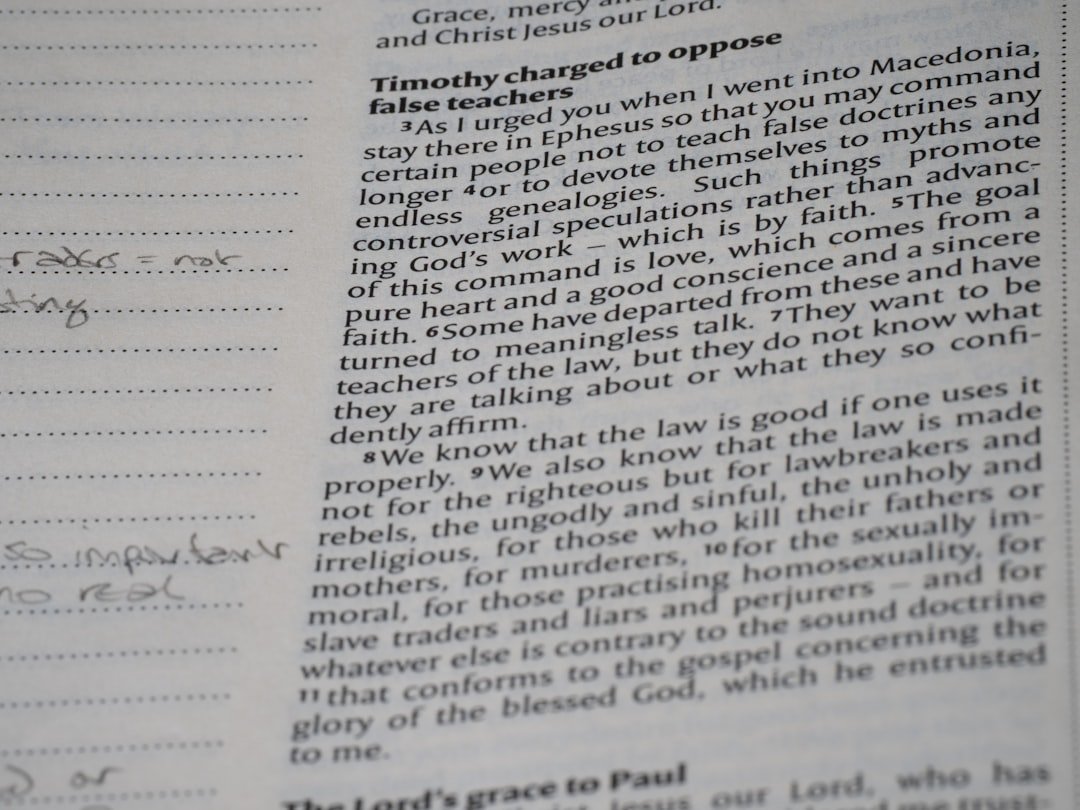 Grace, mercy
and Christ Jesus our Lord.
Timothy charged to oppose
false teachers
3 As I urged you when I went into Macedonia,
stay there in Ephesus so that you may command
certain people not to teach false doctrines any
longer 4 or to devote themselves to myths and
endless genealogies. Such things promote
controversial speculations rather than advanc-
ing God's work – which is by faith. 5 The goal
of this command is love, which comes from a
pure heart and a good conscience and a sincere
faith. 6 Some have departed from these and have
turned to meaningless talk. 7 They want to be
teachers of the law, but they do not know what
they are talking about or what they so confi-
dently affirm.
8 We know that the law is good if one uses it
properly. 9 We also know that the law is made
not for the righteous but for lawbreakers and
rebels, the ungodly and sinful, the unholy and
irreligious, for those who kill their fathers or
mothers, for murderers, 10 for the sexually im-
moral, for those practising homosexuality, for
slave traders and liars and perjurers – and for
whatever else is contrary to the sound doctrine
11 that conforms to the gospel concerning the
glory of the blessed God, which he entrusted
to me.
The Lord's grace to Paul
Jesus our Lord, who has
= not
so important
no real
or